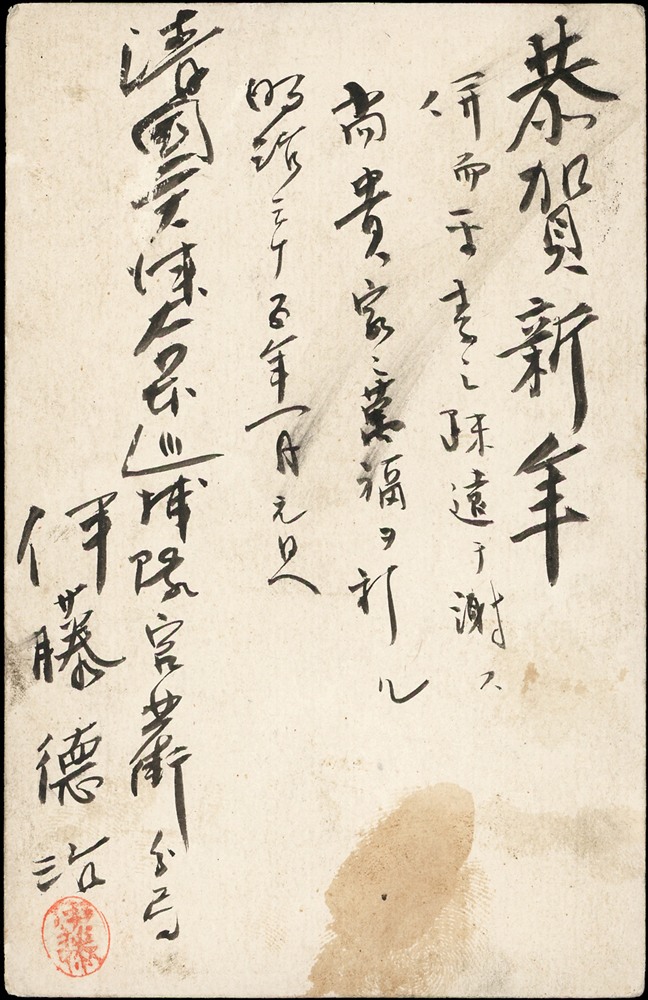 恭賀新年
併而平素之疎遠ヲ謝ス
尚貴家之萬福ヲ祈ル
明治三十五年一月元旦
清國天津 巡捕隊宮 街分局
伊藤德治
伊藤